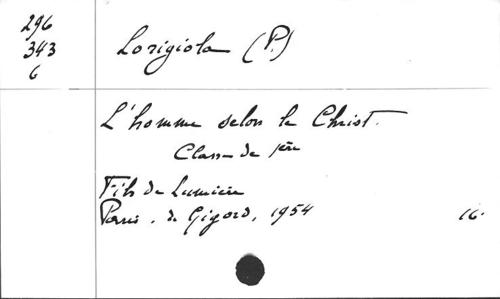 296
343
6
Lorigiola (P.)
L'homme selon le Christ.
Classe de 1ère
Fils de Lumière
Paris. de Gigord, 1954 16.